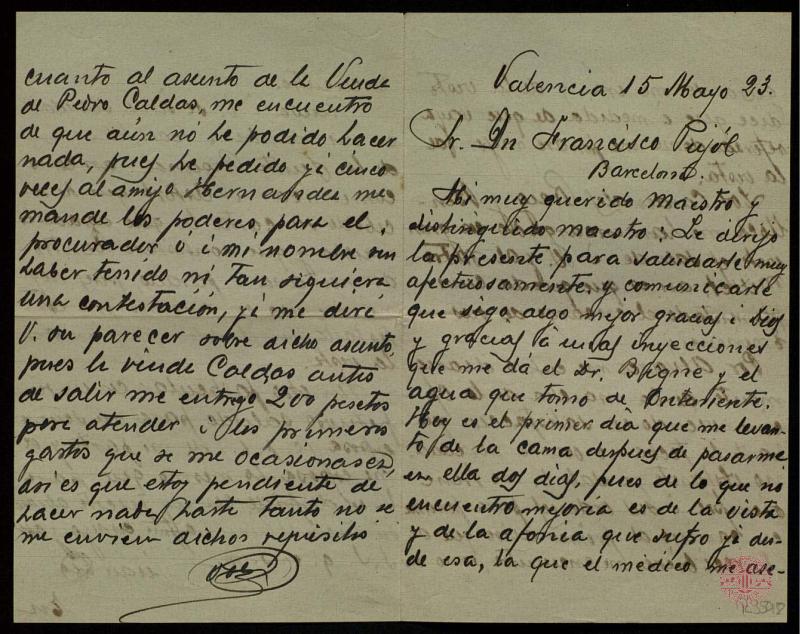 Valencia 15 Mayo 23.
Sr. Dn Francisco Pujól
Barcelona.
Mi muy querido Maestro y
distinguido maestro: Le dirijo
la presente para saludarle muy
afectuosamente y comunicarle
que sigo algo mejor gracias á Dios
y gracias á unas inyecciones
que me dá el Dr. Bigne y el
agua que tomo de Onteniente.
Hoy es el primer dia que me levan-
to de la cama despues de pasarme
en ella dos dias, pues de lo que no
encuentro mejoria es de la vista
y de la afonia que sufro ya des-
de esa, la que el médico me ase-
cuanto al asunto de la Viuda
de Pedro Caldas, me encuentro
de que aún no he podido hacer
nada, pues he pedido ya cinco
veces al amigo Hernandez me
mande los poderes para el
procurador ó á mi nombre sin
haber tenido ni tan siquiera
una contestación, ya me dirá
V. su parecer sobre dicho asunto,
pues la viuda Caldas antes
de salir me entregó 200 pesetas
para atender á los primeros
gastos que se me ocasionasen,
asi es que estoy pendiente de
hacer nada hasta tanto no se
me envien dichos requisitos